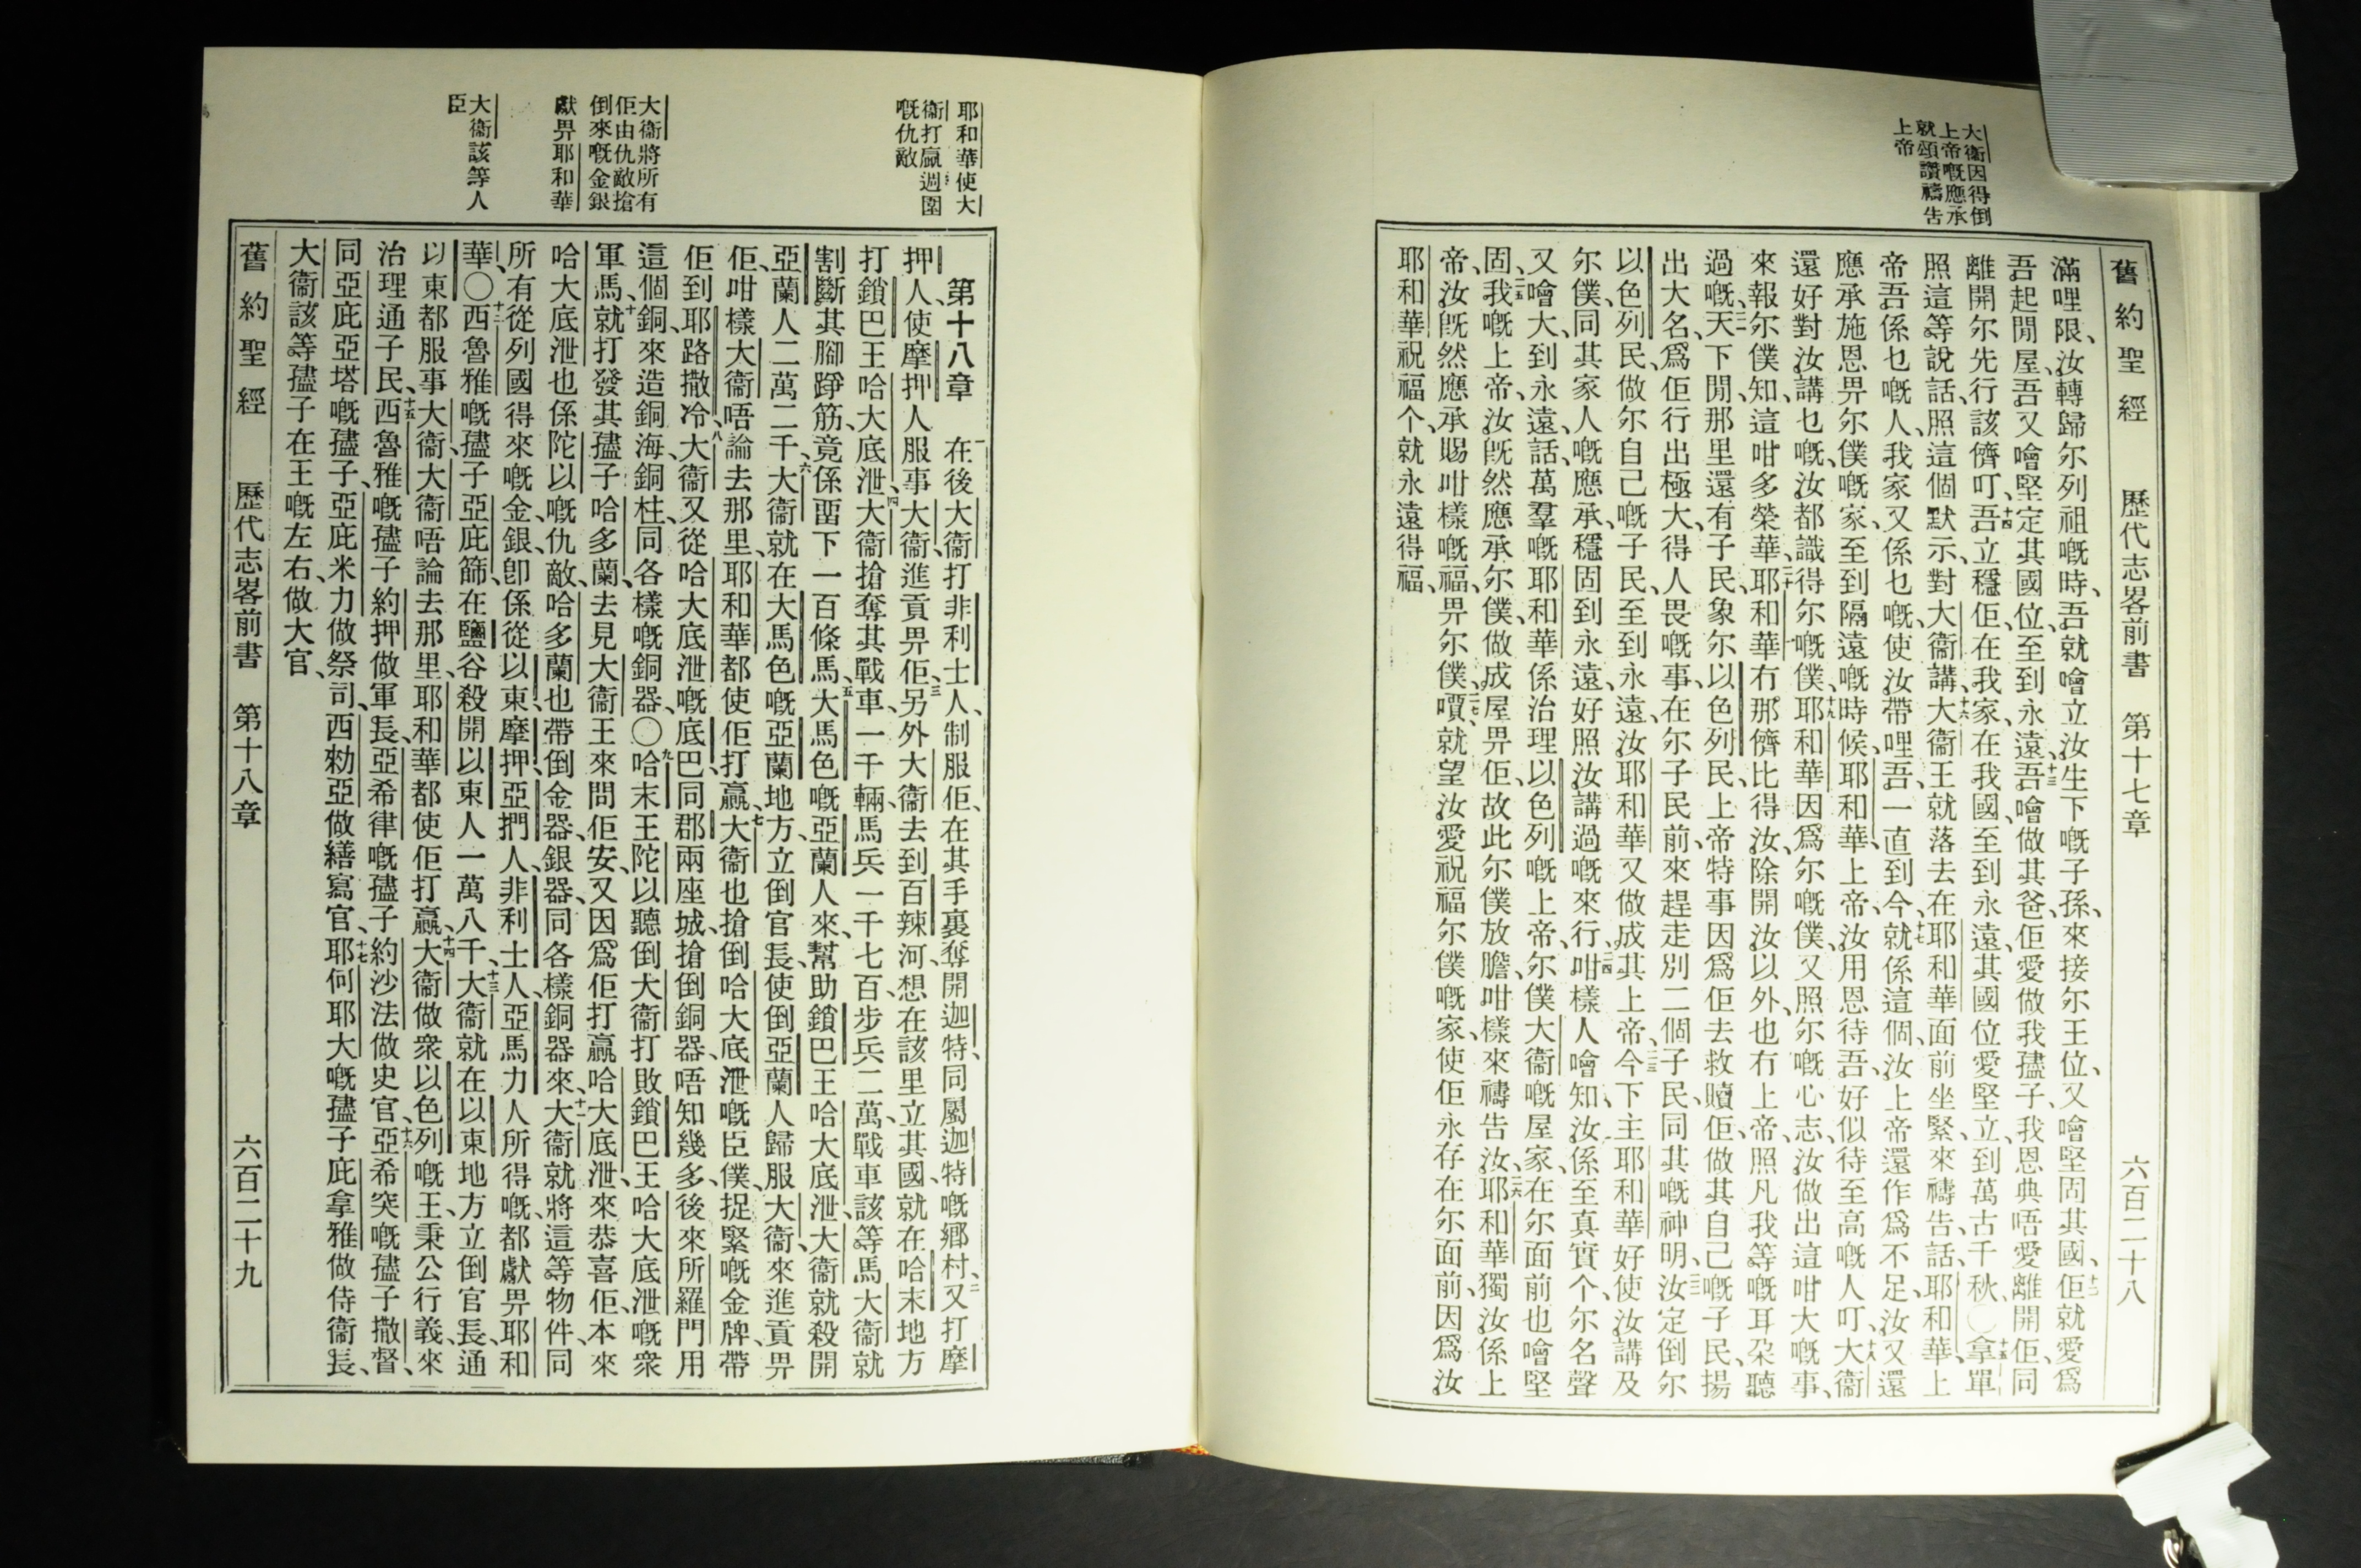 舊約聖經 歷代志畧前書 第十七章 六百二十八
大衞因得倒
上帝嘅應承
就頌讚禱告
上帝
滿哩限、汝轉歸尔列祖嘅時、吾就噲立汝生下嘅子孫、來接尔王位、又噲堅固其國、十二佢就愛爲
吾起間屋、吾又噲堅定其國位、至到永遠、十三吾噲做其爸、佢愛做我孻子、我恩典唔愛離開佢、同
離開尔先行該儕叮、十四吾立穩佢、在我家、在我國、至到永遠、其國位愛堅立、到萬古千秋、〇十五拿單
照這等說話、照這個默示、對大衞講、十六大衞王就落去在耶和華面前坐緊、來禱告、話、耶和華上
帝、吾係乜嘅人、我家又係乜嘅、使汝帶哩吾、一直到今、十七就係這個、汝上帝還作爲不足、汝又還
應承施恩畀尔僕嘅家、至到隔遠嘅時候、耶和華上帝、汝用恩待吾、好似待至高嘅人叮、十八大衞
還好對汝講乜嘅、汝都識得尔嘅僕、十九耶和華因爲尔嘅僕、又照尔嘅心志、汝做出這咁大嘅事、
來報尔僕知、這咁多榮華、二十耶和華冇那儕比得汝、除開汝以外、也冇上帝、照凡我等嘅耳朶聽
過嘅、二一天下間、那里還有子民、象尔以色列民、上帝特事因爲佢去救贖佢、做其自己嘅子民、揚
出大名、爲佢行出極大、得人畏嘅事、在尔子民前、來趕走別二個子民、同其嘅神明、二二汝定倒尔
以色列民、做尔自己嘅子民、至到永遠、汝耶和華又做成其上帝、二三今下主耶和華好使汝講及
尔僕、同其家人嘅應承、穩固到永遠、好照汝講過嘅來行、二四咁樣人噲知、汝係至真實个、尔名聲
又噲大、到永遠、話、萬羣嘅耶和華係治理以色列嘅上帝、尔僕大衞嘅屋家、在尔面前也噲堅
固、二五我嘅上帝、汝旣然應承尔僕、做成屋畀佢、故此尔僕放膽、咁樣來禱告汝、二六耶和華獨汝係上
帝、汝旣然應承、賜咁樣嘅福、畀尔僕、二七嘪、就望汝愛祝福尔僕嘅家、使佢永存在尔面前、因爲汝
耶和華祝福个、就永遠得福、
耶和華使大
衞打贏週圍
嘅仇敵
大衞將所有
佢由仇敵搶
倒來嘅金銀
獻畀耶和華
大衞該等人
臣
第十八章 一在後大衞打非利士人、制服佢、在其手裏奪開迦特、同屬迦特嘅鄉村、二又打摩
押人、使摩押人服事大衞、進貢畀佢、三另外大衞去到百辣河、想在該里立其國、就在哈末地方
打鎖巴王哈大底泄、四大衞搶奪其戰車、一千輛、馬兵一千七百、步兵二萬、戰車該等馬、大衞就
割斷其腳踭筋、竟係畱下一百條馬、五大馬色嘅亞蘭人來、幫助鎖巴王哈大底泄、大衞就殺開
亞蘭人二萬二千、六大衞就在大馬色嘅亞蘭地方、立倒官長、使倒亞蘭人歸服大衞、來進貢畀
佢、咁樣大衞唔論去那里、耶和華都使佢打贏、七大衞也搶倒哈大底泄嘅臣僕、捉緊嘅金牌、帶
佢到耶路撒冷、八大衞又從哈大底泄嘅底巴、同郡兩座城、搶倒銅器、唔知幾多、後來所羅門用
這個銅、來造銅海、銅柱、同各樣嘅銅器、〇九哈末王陀以聽倒大衞打敗鎖巴王哈大底泄嘅衆
軍馬、十就打發其孻子哈多蘭、去見大衞王來問佢安、又因爲佢打贏哈大底泄、來恭喜佢、本來
哈大底泄也係陀以嘅仇敵、哈多蘭也帶倒金器、銀器、同各樣銅器來、十一大衞就將這等物件、同
所有從列國得來嘅金銀、卽係從以東、摩押、亞捫人、非利士人、亞馬力人所得嘅、都獻畀耶和
華、〇十二西魯雅嘅孻子亞庇篩、在鹽谷殺開以東人一萬八千、十三大衞就在以東地方立倒官長、通
以東都服事大衞、大衞唔論去那里、耶和華都使佢打贏、十四大衞做衆以色列嘅王、秉公行義、來
治理通子民、十五西魯雅嘅孻子約押做軍長、亞希律嘅孻子約沙法做史官、十六亞希突嘅孻子撒督、
同亞庇亞塔嘅孻子、亞庇米力做祭司、西勑亞做繕寫官、十七耶何耶大嘅孻子庇拿雅做侍衞長、
大衞該等孻子在王嘅左右、做大官、
舊約聖經 歷代志畧前書 第十八章 六百二十九